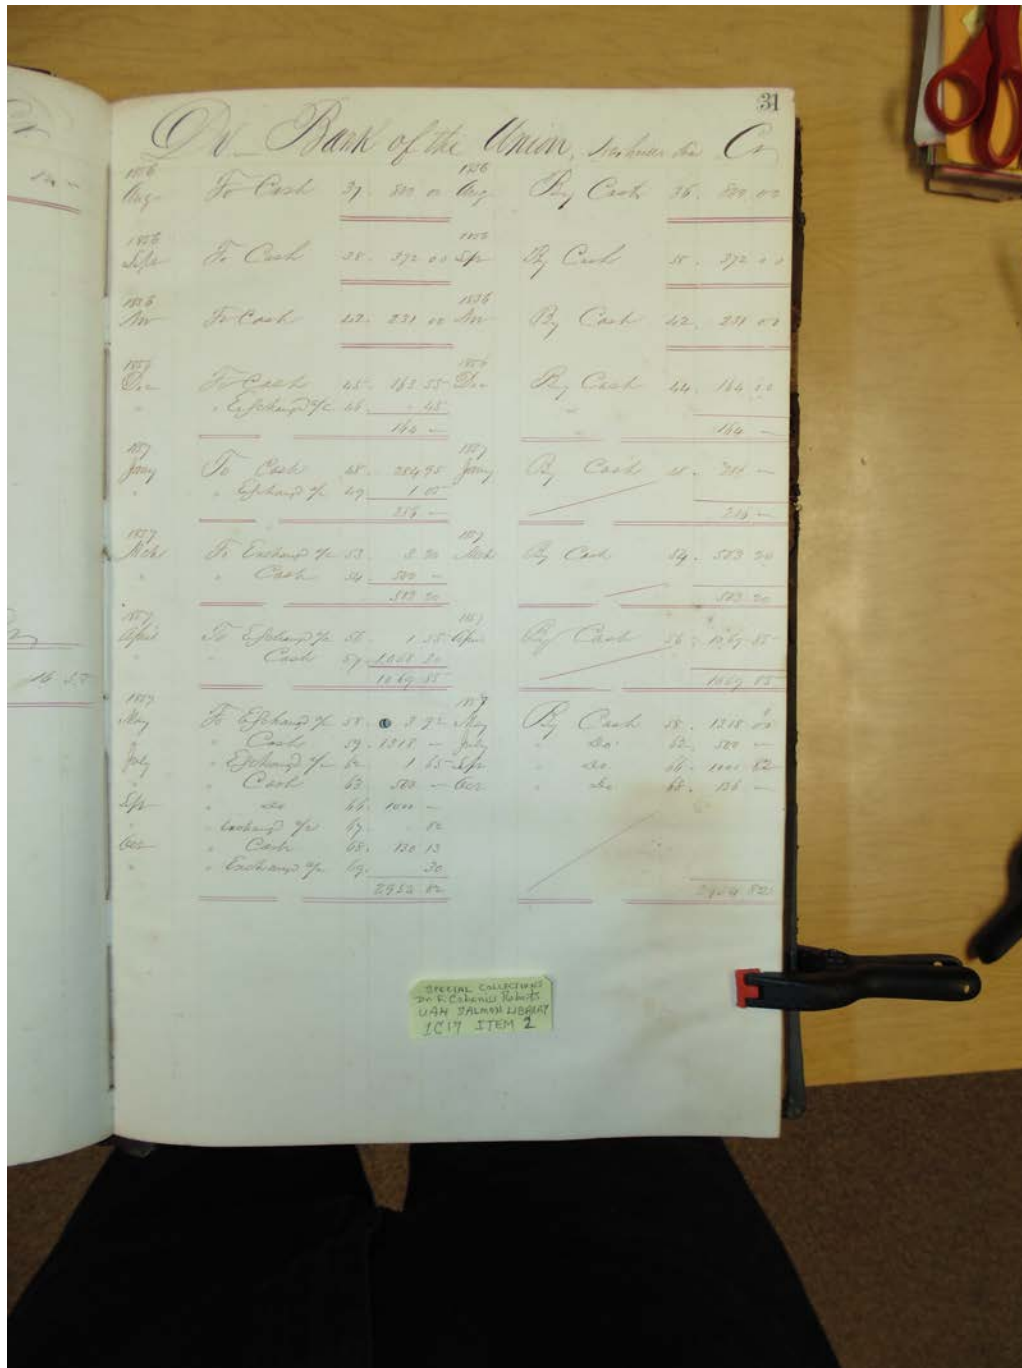 31
Dr Bank of the Union, Nashville Ten Cr
1856 1856
Aug To Cash 37. 800 00 Aug By Cash 36. 800.00
1856 1856
Sept To Cash 38. 372 00 Sept By Cash 38. 372 00
1856 1856
Nov To Cash 42. 231 00 Nov By Cash 42. 231 00
1856
Dec To Cash 45. 163 55 Dec By Cash 44. 164 00
" " Exchange a/c 46. 45
164 — 164 —
1857 1857
Jany To Cash 48. Jany By Cash 48.
" " Exchange a/c 49 1 05
1857 1857
Mch To Exchange a/c 53. 3 20 Mch By Cash 54. 503 20
" " Cash 54. 500 —
503 20 503 20
1857 1857
April To Exchange a/c 56. 1 55 Apr By Cash 56. 1069 85
" Cash 57. 1068 30
1069 85 1069 85
1857 1857
May To Exchange a/c 58. 3 92 May By Cash 58. 1318 00
" Cash 59. 1318 — July " Do. 62. 500 —
July " Exchange a/c 62. 1 65 Sept " Do. 66. 1000 82
" " Cash 63. 500 — Oct " Do 68. 136 —
Sept " Do 66. 1000 —
" " Exchange a/c 67. 82
Oct " Cash 68. 130 13
" " Exchange a/c 69. 30
2954 82 2954 82
SPECIAL COLLECTIONS
Dr F. Cabaniss Roberts
UAH SALMON LIBRARY
1C17 ITEM 2